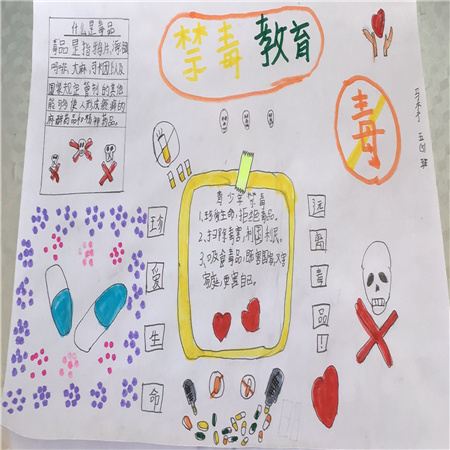 禁毒教育
什么是毒品
毒品是指鸦片,海洛
吗啡,大麻,可卡因以及
国家规定管制的其他
能够使人形成瘾癖的
麻醉药品和精神药品。
毒
五(4)班
青少年禁毒
1.珍爱生命,拒绝毒品。
2.扫除毒害,利国利民。
3.吸食毒品,既害国家,又害
家庭,更害自己。
珍爱生命
远离毒品!